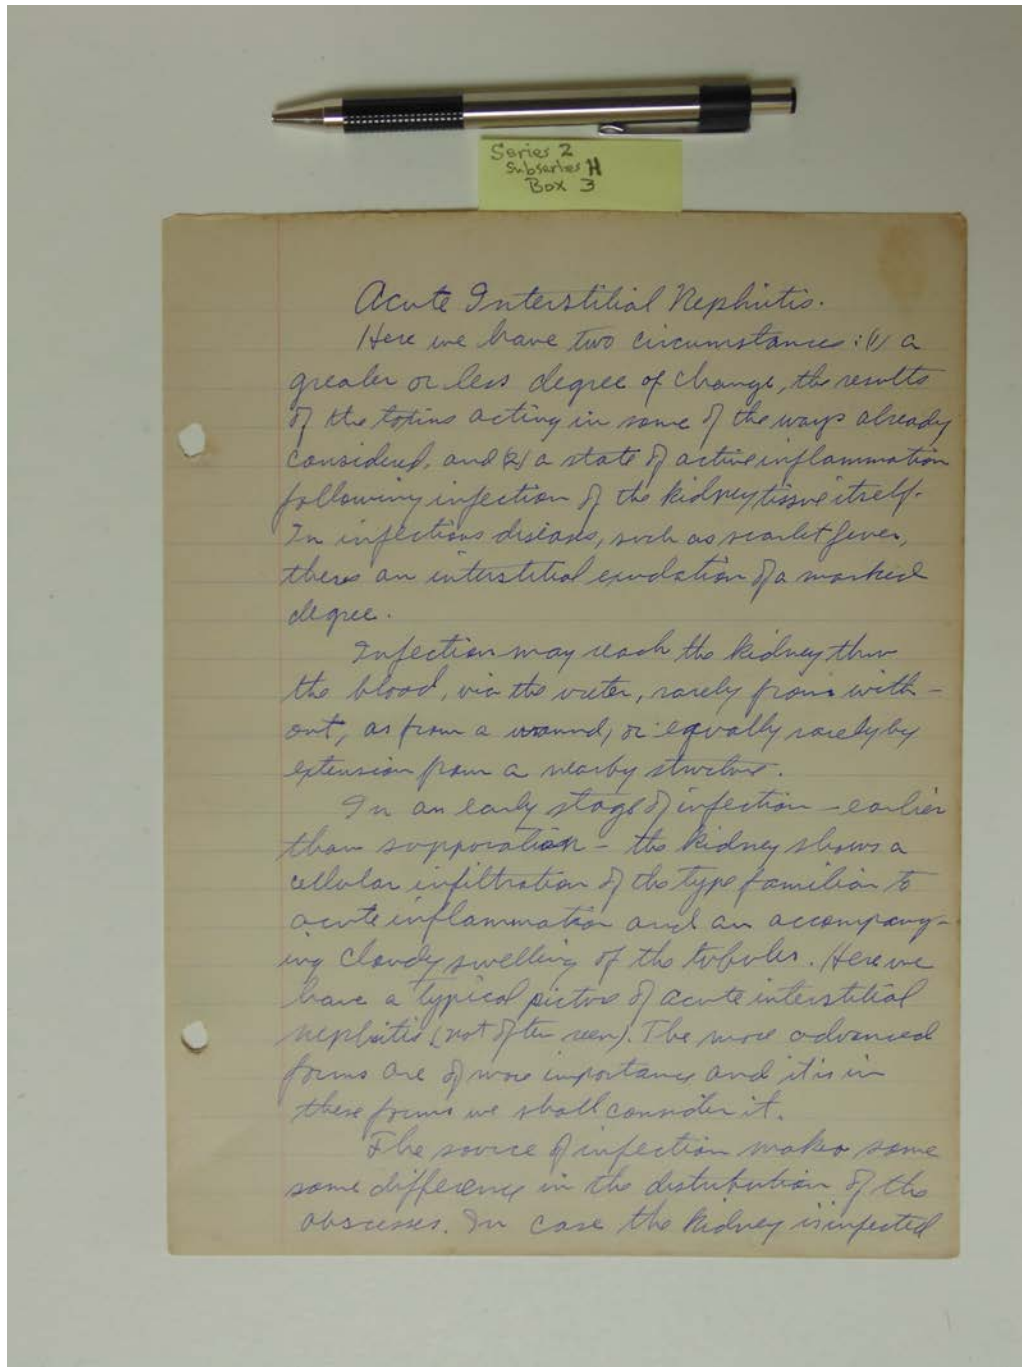 Series 2
Subseries H
Box 3
Acute Interstitial Nephritis.
Here we have two circumstances: (1) a
greater or less degree of change, the results
of the toxins acting in some of the ways already
considered, and (2) a state of active inflammation
following infection of the kidney tissue itself.
In infectious diseases, such as scarlet fever,
theres an interstitial exudation of a marked
degree.
Infection may reach the kidney thru
the blood, via the ureter, rarely from with-
out, as from a wound, or equally rarely by
extension from a nearby structure.
In an early stage of infection - earlier
than suppuration - the kidney shows a
cellular infiltration of the type familiar to
acute inflammation and an accompany-
ing cloudy swelling of the tubules. Here we
have a typical picture of acute interstitial
nephitis (not often seen). The more advanced
forms are of more importance and it is in
these forms we shall consider it.
The source of infection makes some
some difference in the distribution of the
abscesses. In case the kidney is infected